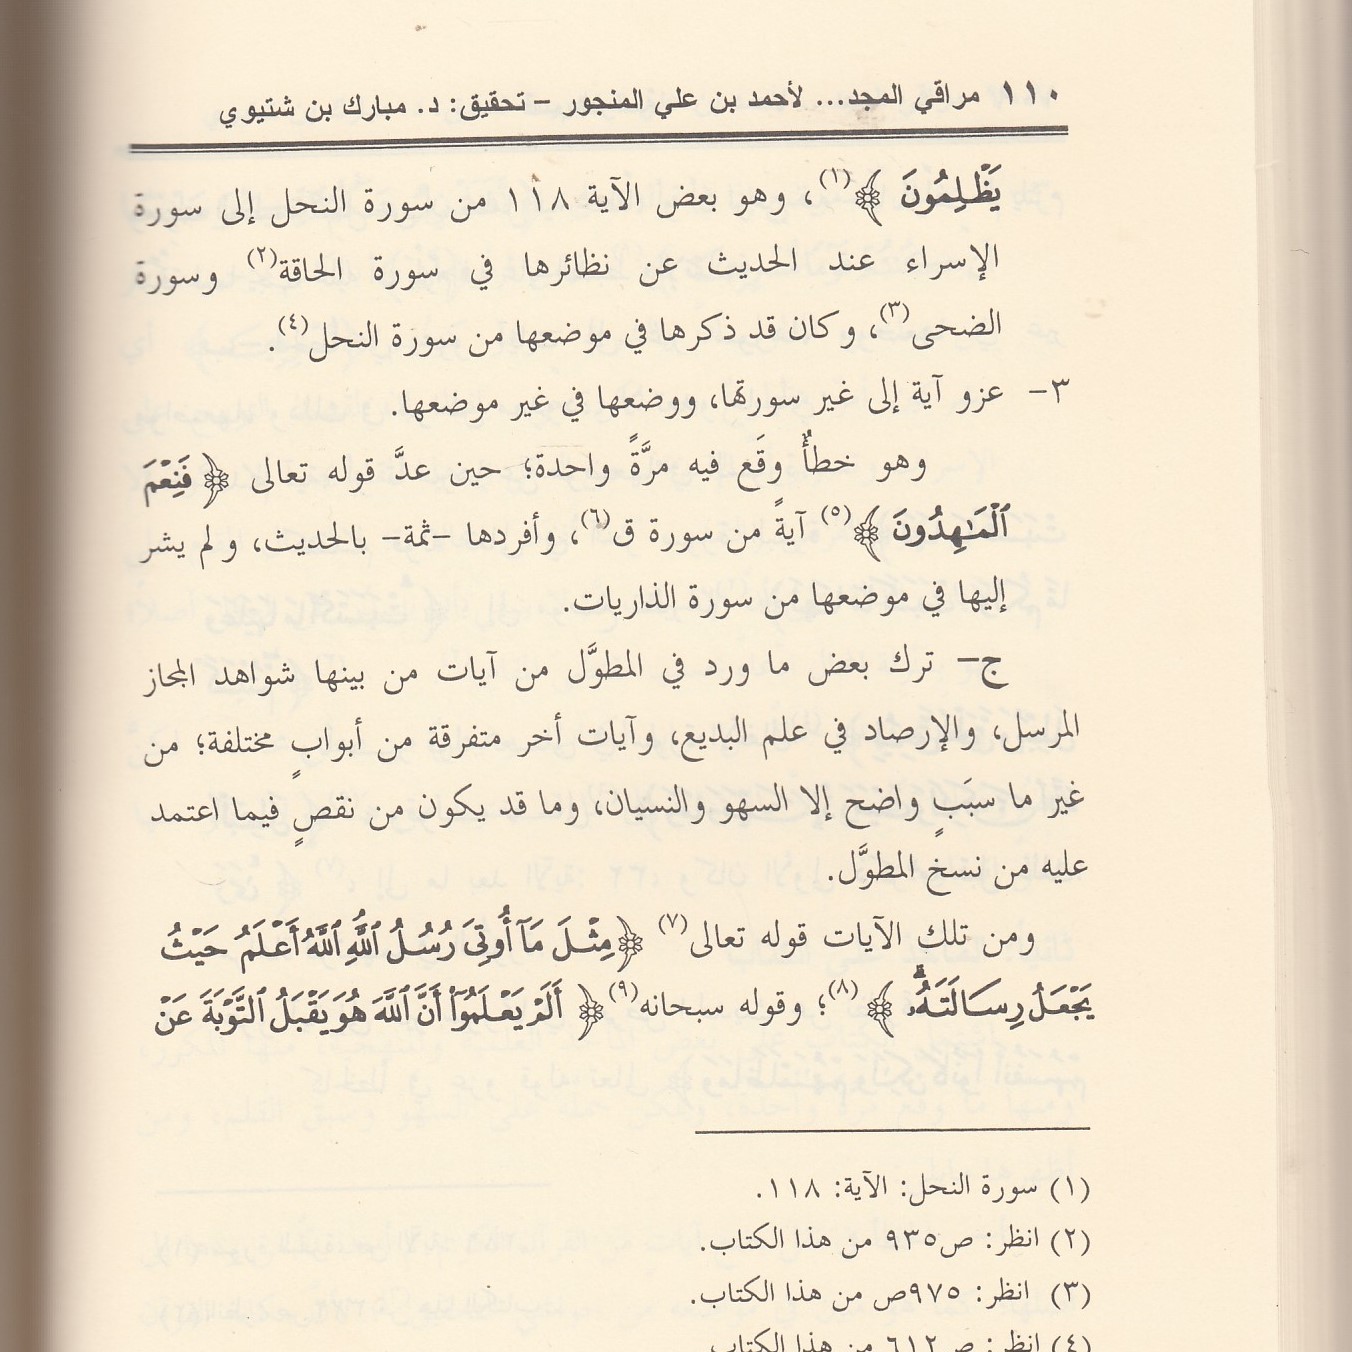 ١١٠ مراقي المجد... لأحمد بن علي المنجور – تحقيق: د. مبارك بن شتيوي
يَظْلِمُونَ ﴾(١)، وهو بعض الآية ١١٨ من سورة النحل إلى سورة
الإسراء عند الحديث عن نظائرها في سورة الحاقة(٢) وسورة
الضحى(٣)، وكان قد ذكرها في موضعها من سورة النحل(٤).
٣- عزو آية إلى غير سورتها، ووضعها في غير موضعها.
وهو خطأٌ وقَع فيه مرَّةً واحدة؛ حين عدَّ قوله تعالى ﴿ فَنِعْمَ
ٱلْمَـٰهِدُونَ ﴾(٥) آيةً من سورة ق(٦)، وأفردها –ثمة– بالحديث، ولم يشر
إليها في موضعها من سورة الذاريات.
ج– ترك بعض ما ورد في المطوَّل من آيات من بينها شواهد المجاز
المرسل، والإرصاد في علم البديع، وآيات أخر متفرقة من أبوابٍ مختلفة؛ من
غير ما سبَبٍ واضح إلا السهو والنسيان، وما قد يكون من نقصٍ فيما اعتمد
عليه من نسخ المطوَّل.
ومن تلك الآيات قوله تعالى(٧) ﴿مِثْلَ مَآ أُوتِىَ رُسُلُ ٱللَّهِ ٱللَّهُ أَعْلَمُ حَيْثُ
يَجْعَلُ رِسَالَتَهُۥ ﴾(٨)؛ وقوله سبحانه(٩) ﴿ أَلَمْ يَعْلَمُوٓا۟ أَنَّ ٱللَّهَ هُوَ يَقْبَلُ ٱلتَّوْبَةَ عَنْ
(١) سورة النحل: الآية: ١١٨.
(٢) انظر: ص٩٣٥ من هذا الكتاب.
(٣) انظر: ٩٧٥ص من هذا الكتاب.
(٤) انظر: ص٦١٢ من هذا الكتاب